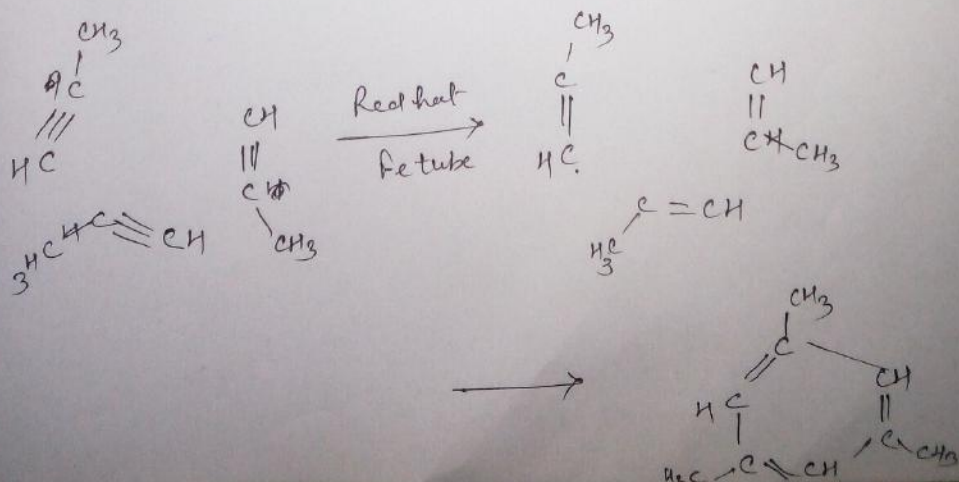 CH3
C
HC
CH
C
CH3
3HC C CH
Red hot
Fe tube
CH3
C
HC.
CH
C CH3
C = CH
H3C
CH3
C
CH
HC
C CH3
H3C C CH